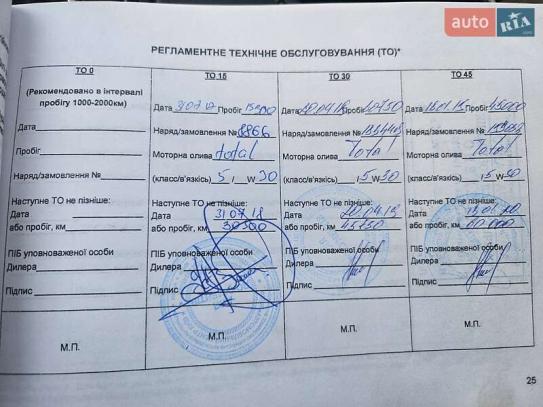 auto RIA.com
РЕГЛАМЕНТНЕ ТЕХНІЧНЕ ОБСЛУГОВУВАННЯ (ТО)*
ТО 0
(Рекомендовано в інтервалі
пробігу 1000-2000км)
Дата
Пробіг
Наряд/замовлення №
Наступне ТО не пізніше:
Дата
або пробіг, км
ПІБ уповноваженої особи
Дилера
Підпис
М.П.
ТО 15
Дата 31.07.17 Пробіг 15000
Наряд/замовлення №
Моторна олива total
(класс/в'язкість) 5 / W 30
Наступне ТО не пізніше:
Дата 31.07.18
або пробіг, км 30500
ПІБ уповноваженої особи
Дилера
Підпис
М.П.
ТО 30
Дата 20.04.18 Пробіг
Наряд/замовлення №
Моторна олива Total
(класс/в'язкість) 5 W 30
Наступне ТО не пізніше:
Дата 20.04.19
або пробіг, км
ПІБ уповноваженої особи
Дилера
Підпис
М.П.
ТО 45
Дата Пробіг 45000
Наряд/замовлення №
Моторна олива Total
(класс/в'язкість) 5 W
Наступне ТО не пізніше:
Дата
або пробіг, км 60000
ПІБ уповноваженої особи
Дилера
Підпис
М.П.
25